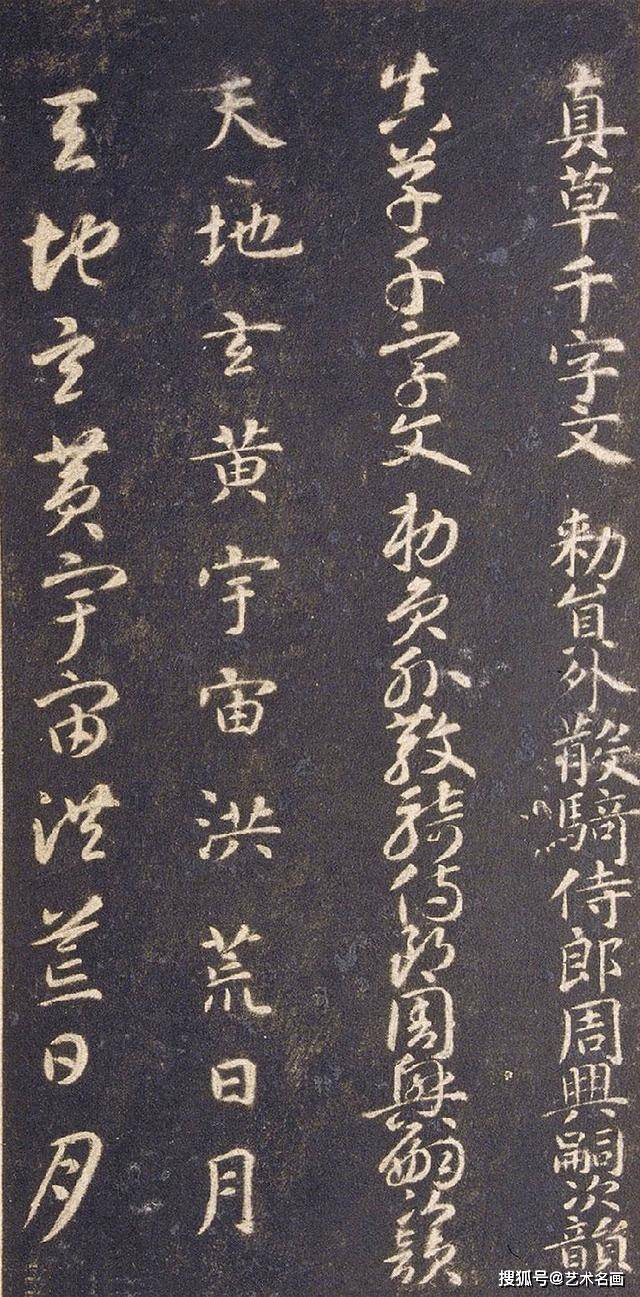 真草千字文 勅員外散騎侍郎周興嗣次韻
真草千字文 勅員外散騎侍郎周興嗣次韻
天地玄黄宇宙洪荒日月
天地玄黄宇宙洪荒日月
搜狐号@艺术名画